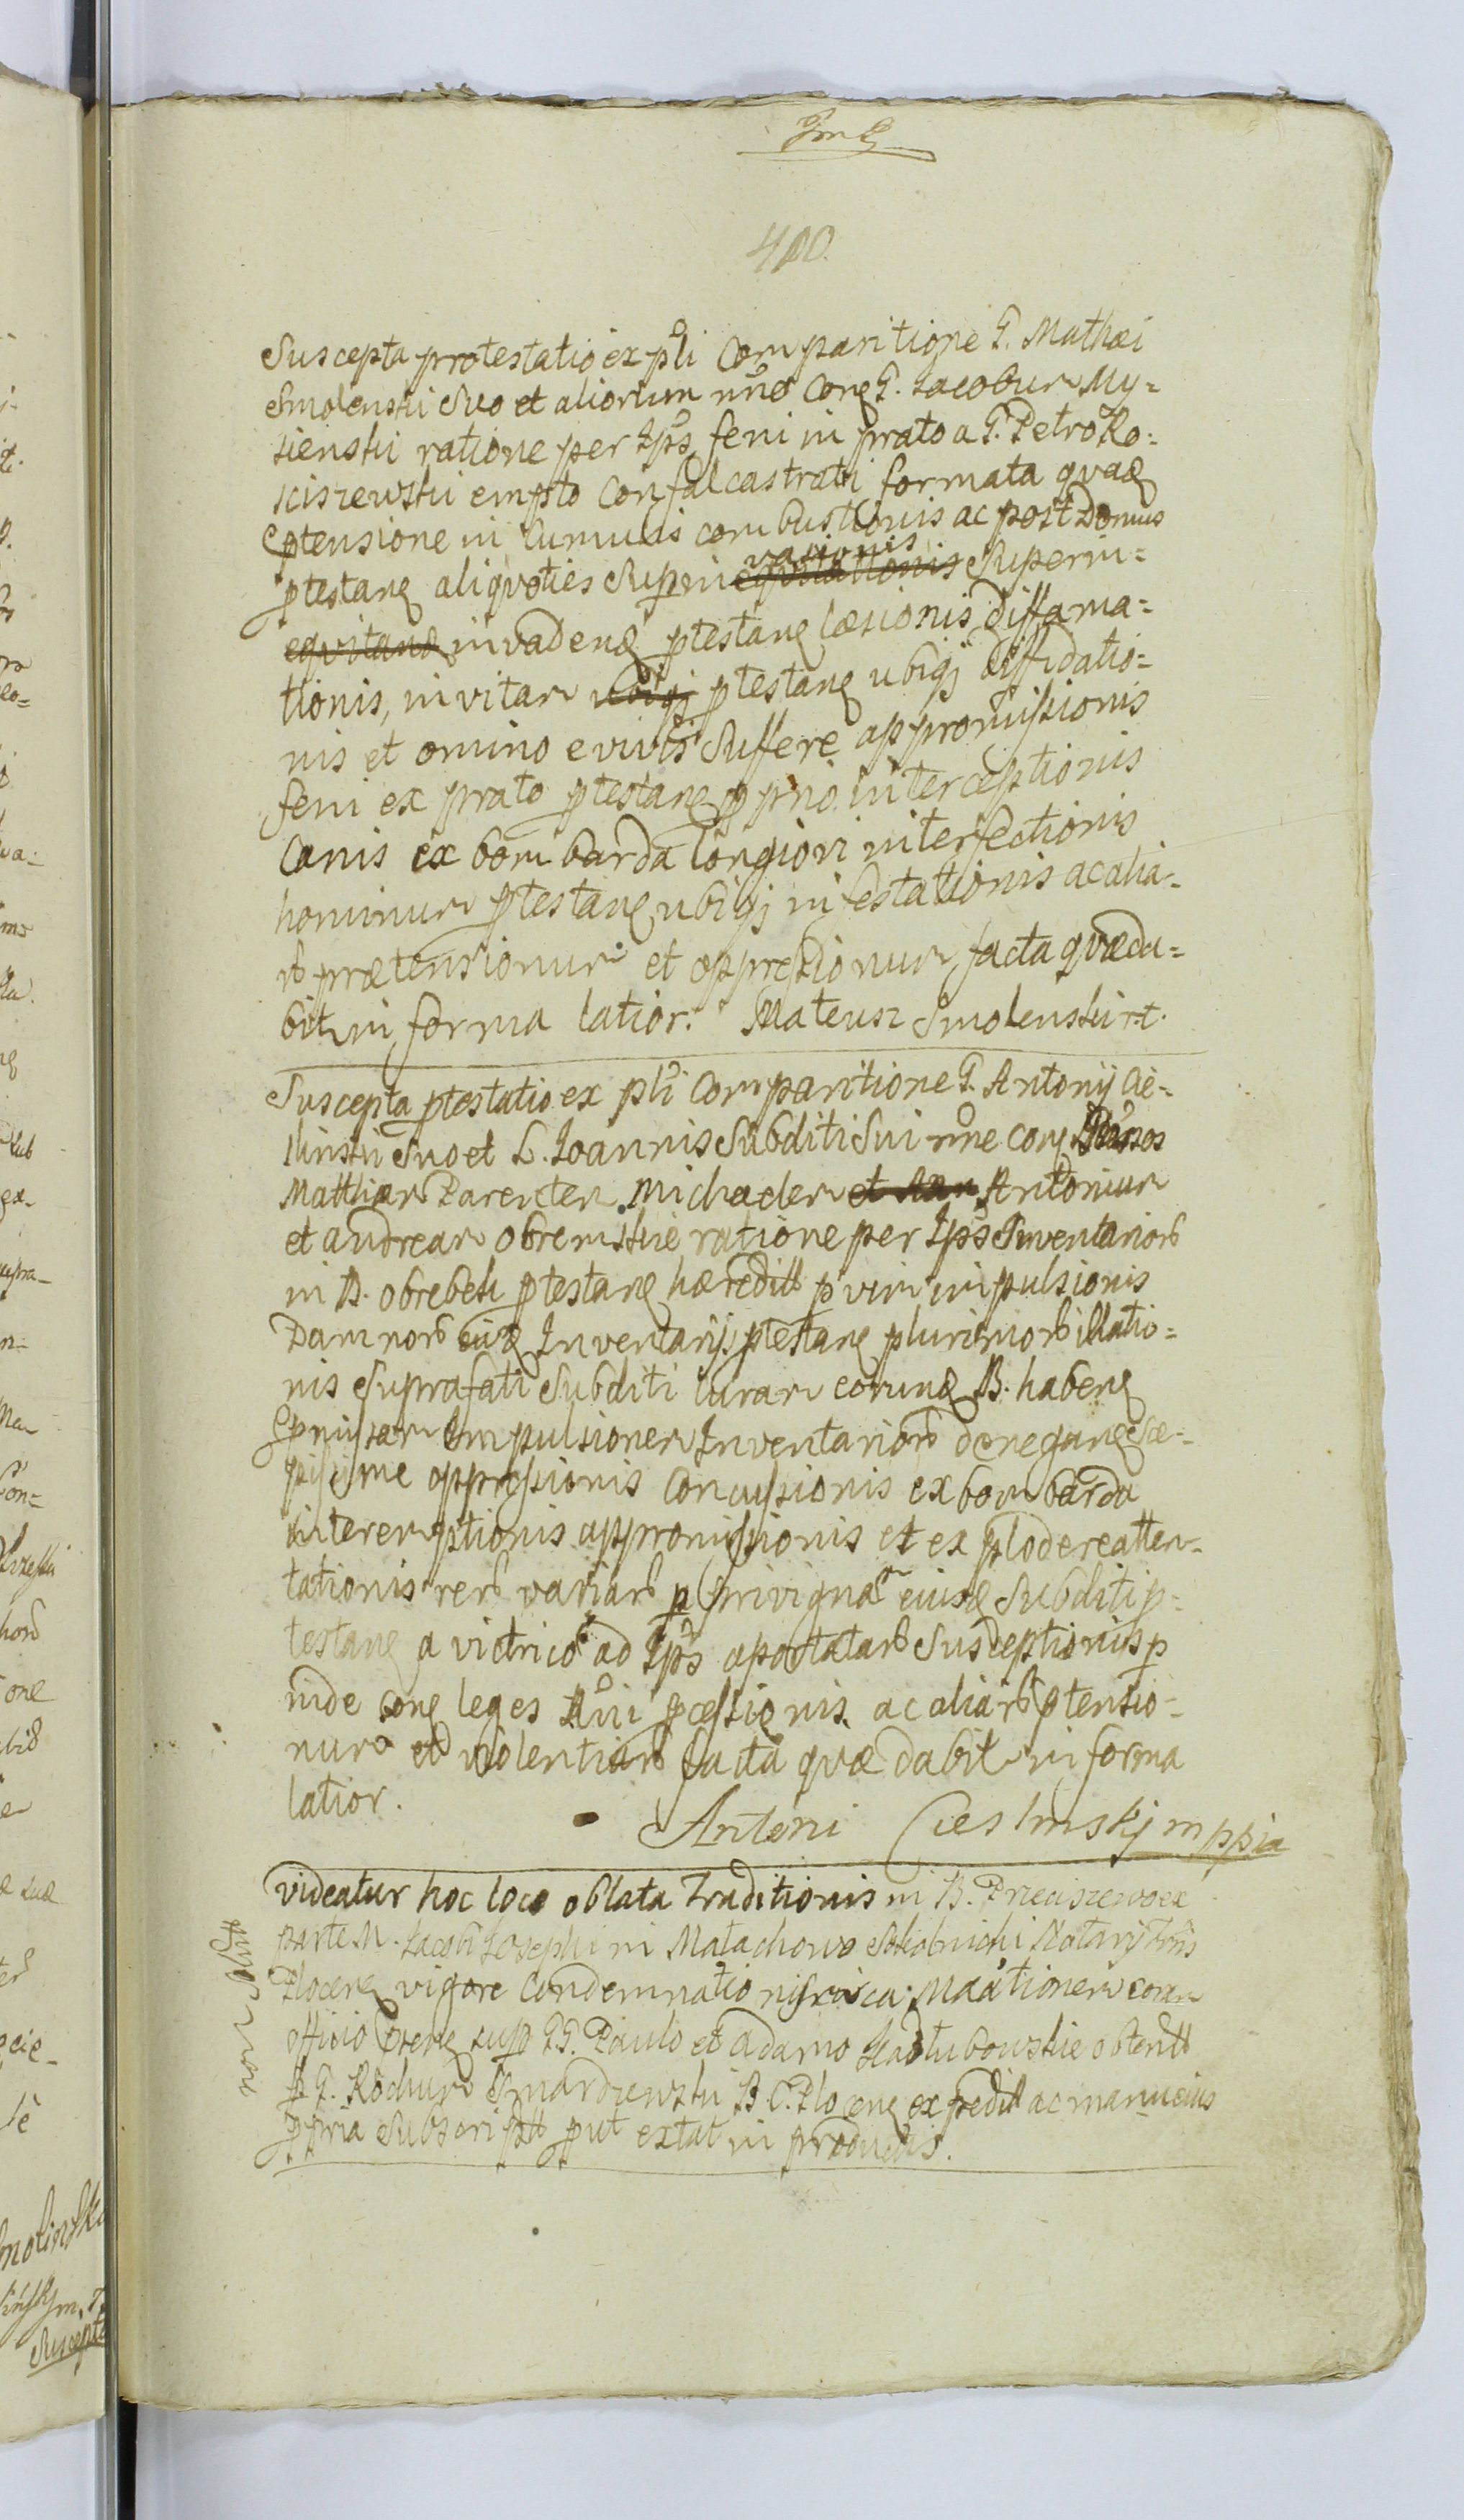 400.
Suscepta protestatio ex pli Comparitione G. Mathæi
Smolenski Suo et aliorum nne Con G. Iacobum My-
sienski ratione per Ips feni in prato a G. Petro Ro-
sciszewski empto Confalcastrati formata quæ
ptensione in Cumulis combustionis ac post Domus
ptestan aliqvoties Superin eqvitationis vasionis Superin-
eqvitand invaden ptestan læsionis, diffama-
tionis, in vitam ubiqj ptestan ubiqj diffidatio-
nis et omnino e vivis Suffere appromissionis
feni ex prato ptestan pprio interceptionis
Canis ex bombarda longiori interfectionis
hominum ptestan ubiqj infestationis ac alia-
rb prætensionum et oppressionum facta qvæ da-
bit in forma latior. Mateusz Smolenski r.t.
Suscepta ptestatio ex pli Comparitione G. Antonij Cie-
slinski Suo et L. Ioannis Subditi Sui nne Con
Matthiam Parentem Michaelem et Antonium
et Andream Obremskie ratione per Ips Inventariorb
in B. Obrebek ptestan hæredit p vim impulsionis
Damnorb Inventarij ptestan plurimorb illatio-
nis Suprafati Subditi Curam eorund B. haben
pmissam Impulsionem Inventariorb denegan Sæ-
pissime oppressionis Concussionis ex bombarda
interemptionis appromissionis et explodere atten-
tationis rerb variarb p privignam eiusd Subditi p-
testan a vitrico ad Ips aportatarb Susceptionis p
inde con leges pcessionis ac aliarb ptensio-
num et violentiarb facta qvæ dabit in forma
latior.
Antoni Cieslinskj mppia
videatur hoc loco oblata Traditionis in B. Przeciszewo ex
parte M. Iacobi Iosephi in Małachowo Notarij Trris
Plocen vigore Condemnationis coram
officio psen sup GG. Paulo et Adamo obtent
p G. Rochum Smardzewski B. C. Plocen expedit ac manu eius
ppria Subscript put extat in productis.